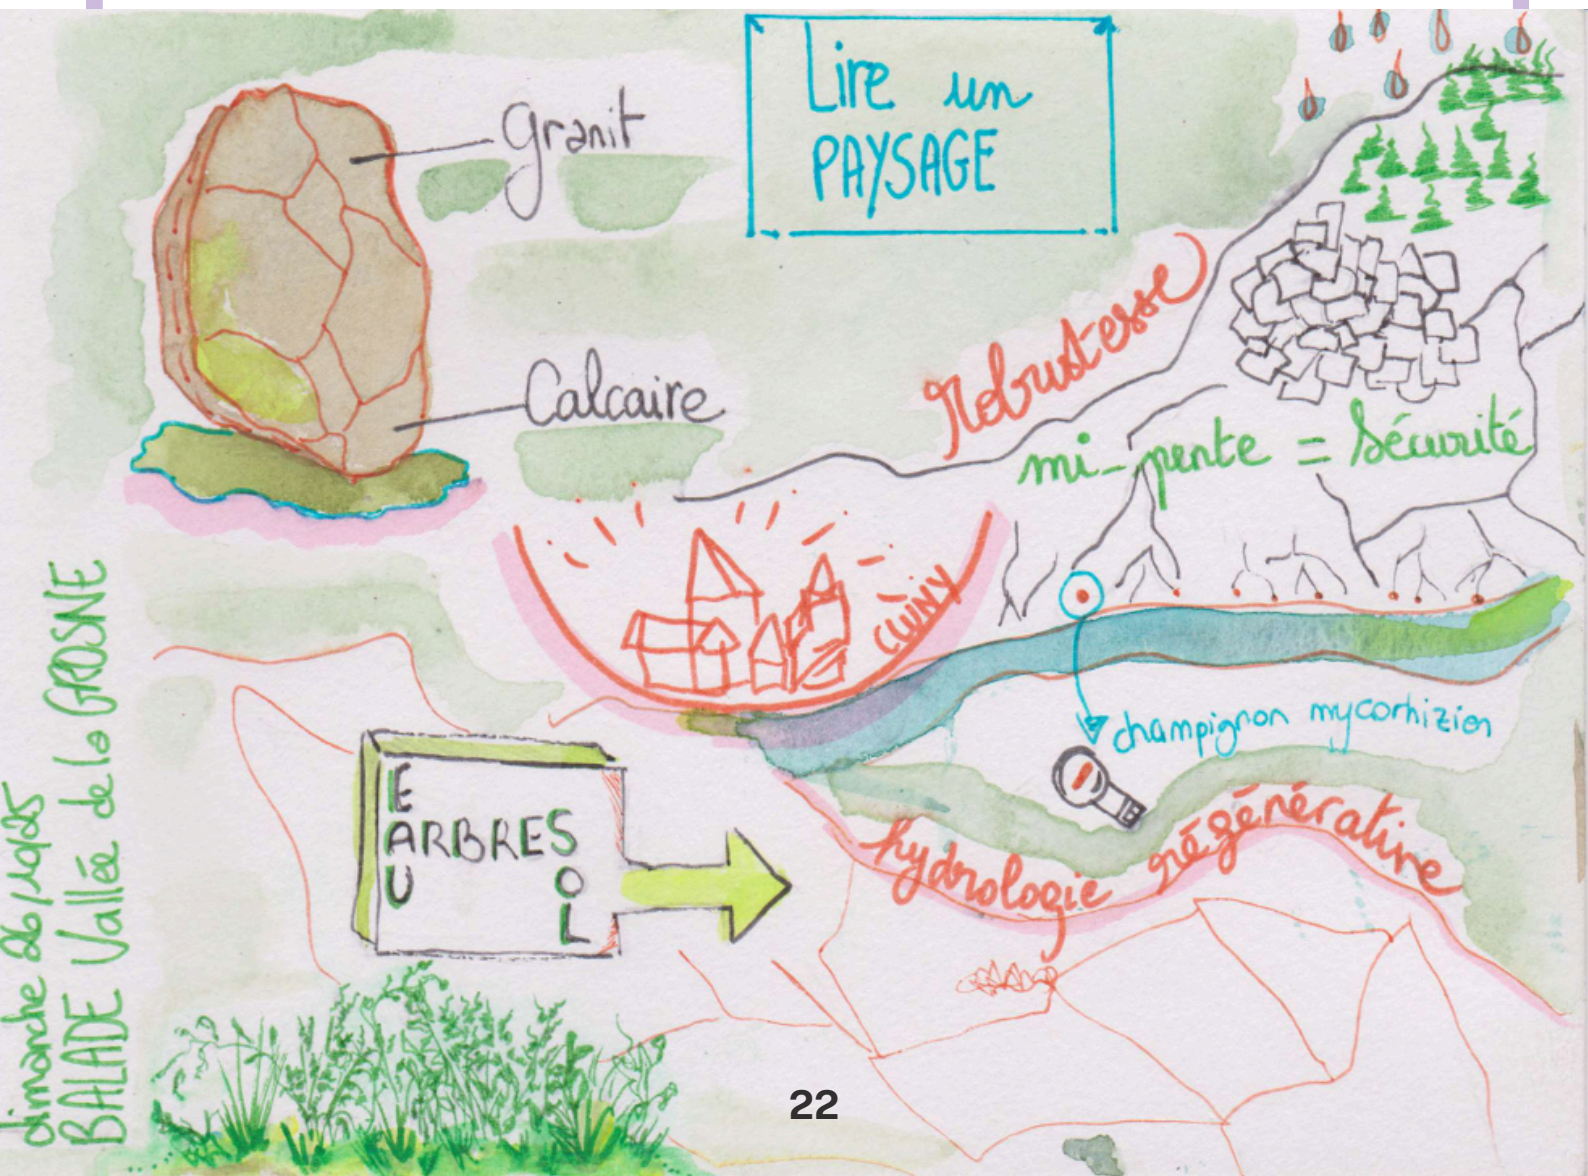 Lire un
PAYSAGE
granit
Calcaire
Robustesse
mi-pente = Sécurité
CLUNY
champignon mycorhizien
hydrologie régénérative
EAU
ARBRES
SOL
dimanche 26/10/25
BALADE Vallée de la GROSNE
22